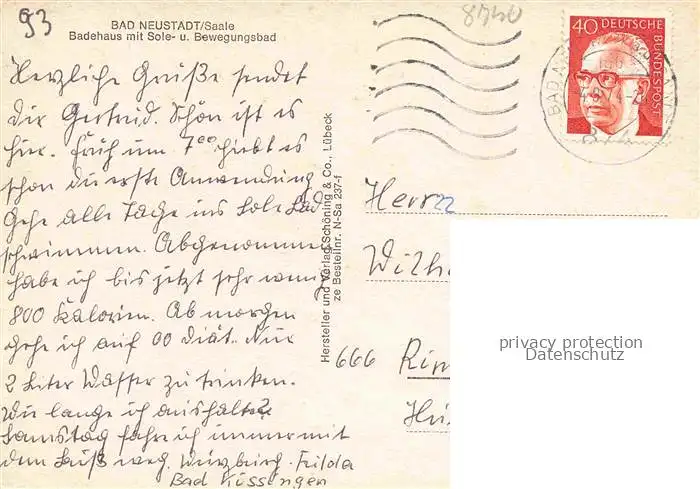 93
BAD NEUSTADT/Saale
Badehaus mit Sole- u. Bewegungsbad
Herzliche Grüße sendet
dir Gertrud. Schön ist es
hier. Früh um 7 00 giebt es
schon die erste Anwendung
Gehe alle Tage ins Sole Bad
schwimmen. Abgenommen
habe ich bis jetzt sehr wenig
800 Kalorien. Ab morgen
gehe ich auf 00 diät. Nur
2 Liter Wasser zu trinken.
Wie lange ich aushalte?
Samstag fahre ich immer mit
dem Bus weg. Würzburg. Fulda
Bad Kissingen
Hersteller und Verlag Schöning & Co., Lübeck
ze Bestellnr. N-Sa 237-f
40 DEUTSCHE BUNDESPOST
BAD
Herrn
Wilh
666 Rin
privacy protection
Datenschutz